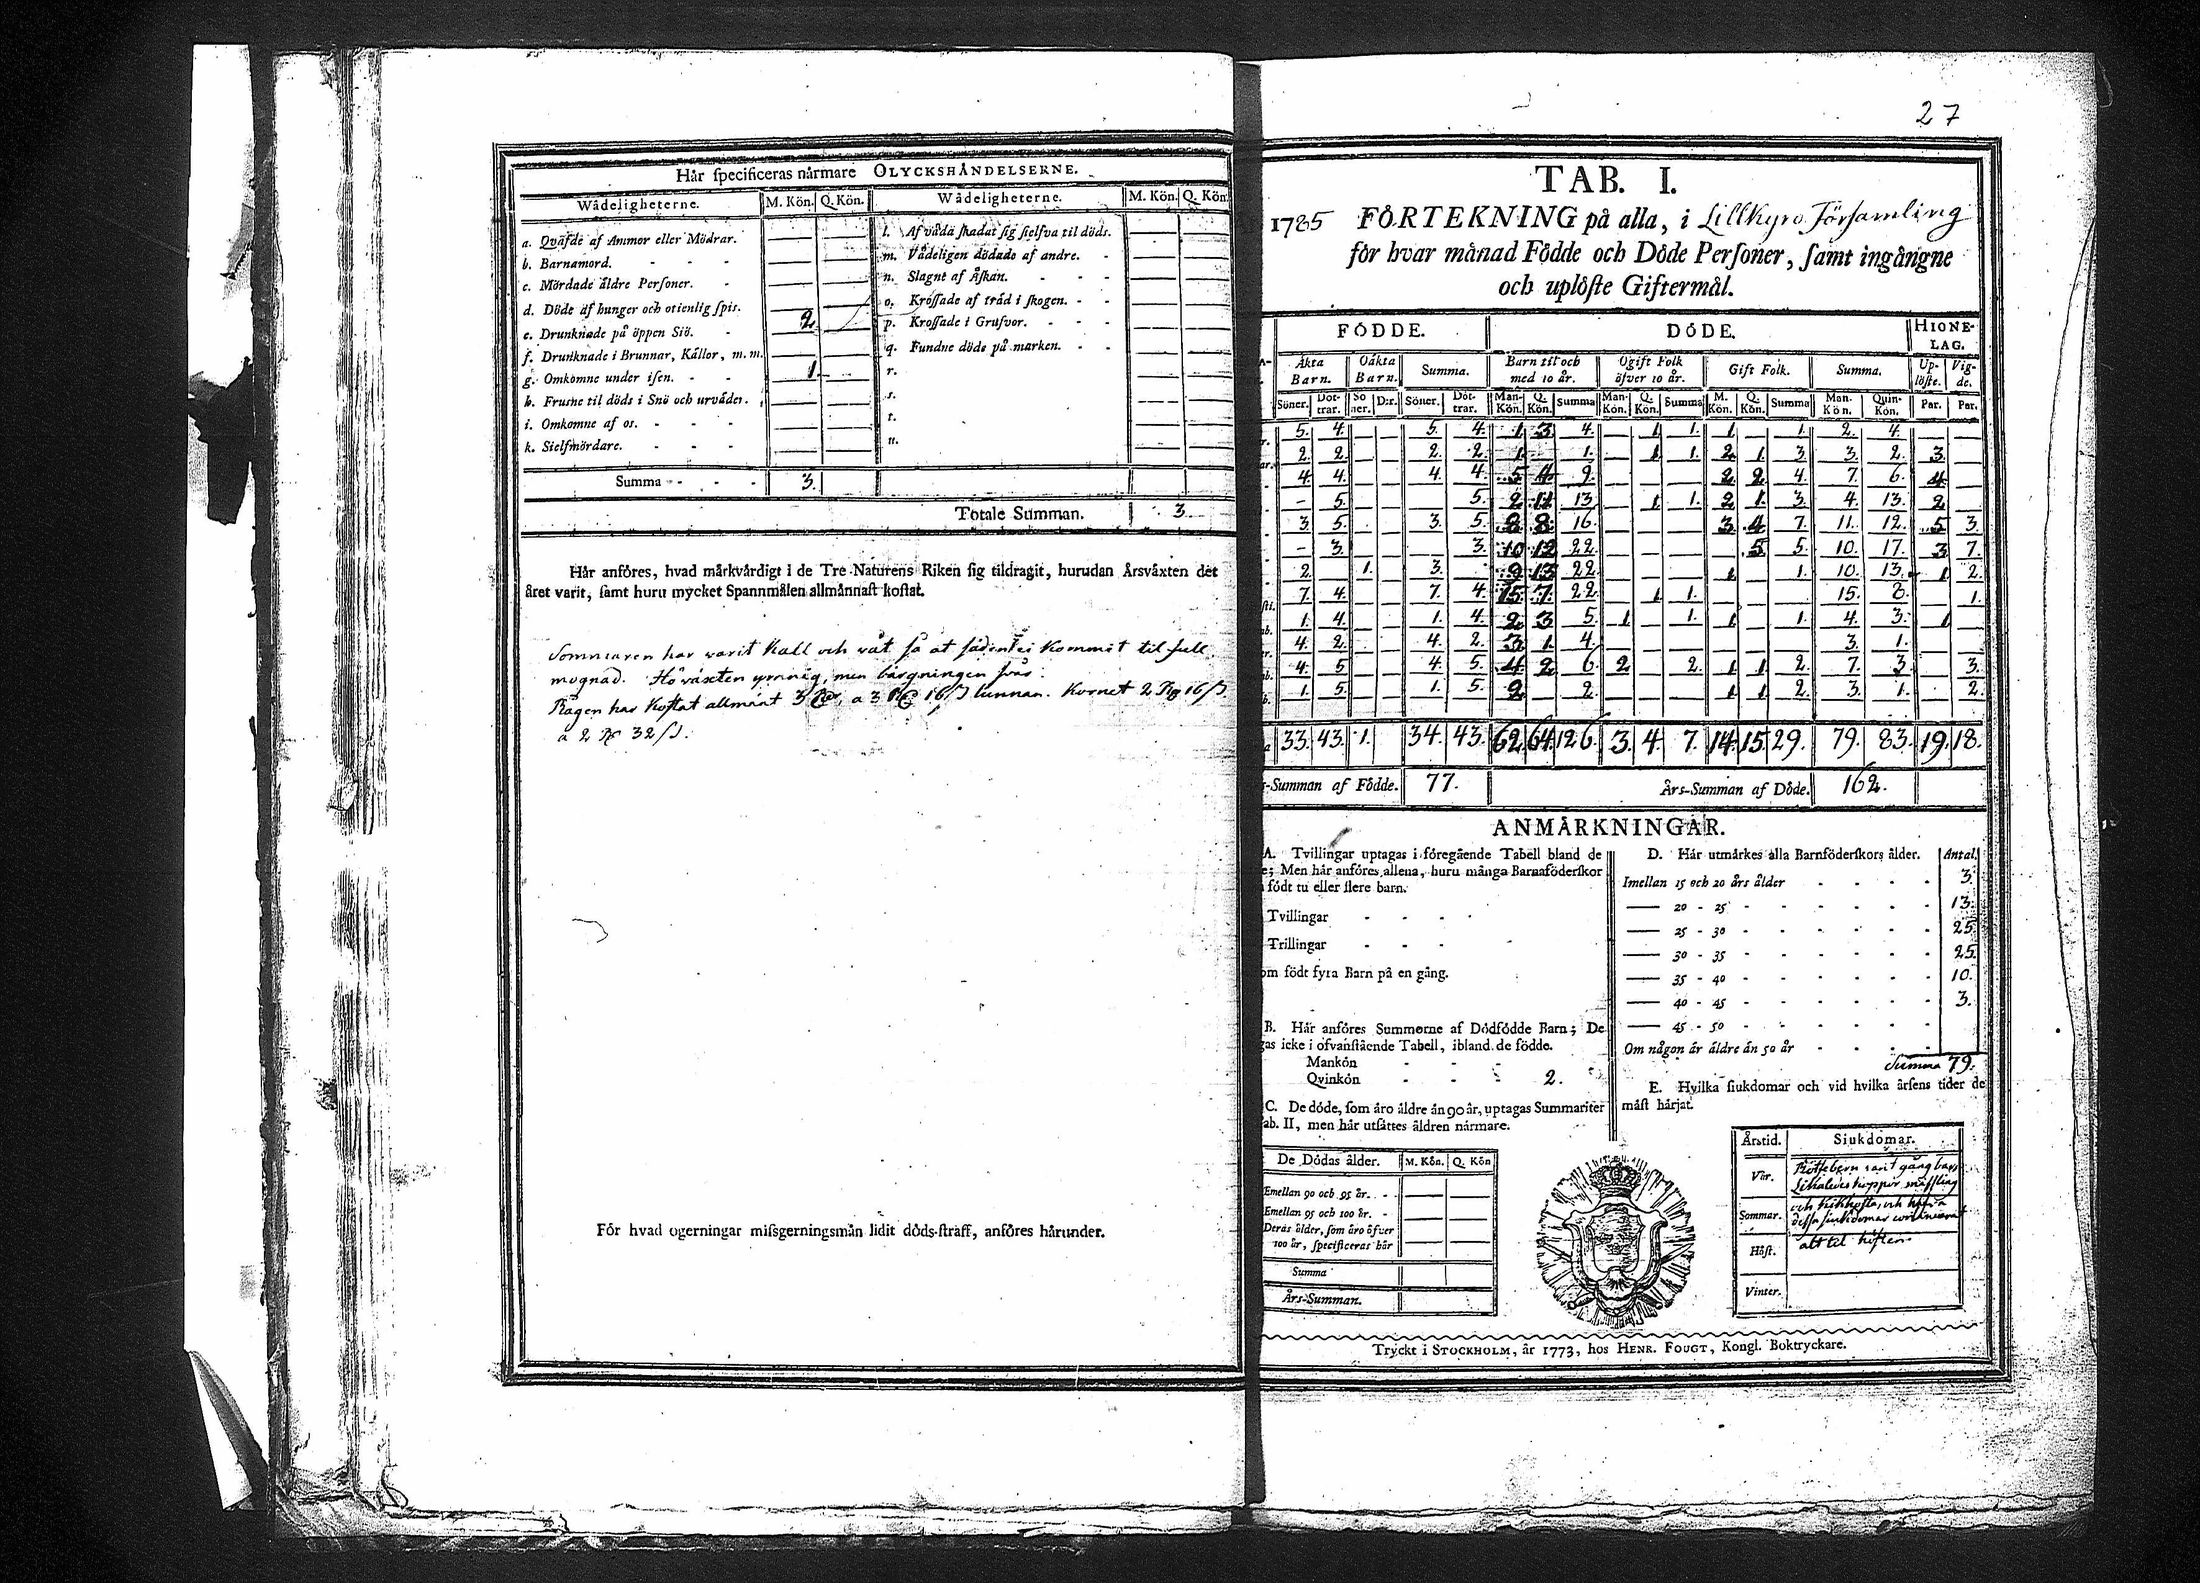 Här specificeras närmare OLYCKSHÄNDELSERNE.
Wådeligheterne. M. Kön. Q. Kön. Wådeligheterne. M. Kön. Q. Kön.
a. Qväfde af Ammor eller Mödrar. — — l. Af våda skadat sig sielfva til döds. — —
b. Barnamord. - - - — — m. Vådeligen dödade af andre. - — —
c. Mördade äldre Personer. - — — n. Slagne af Åskan. - - - — —
d. Döde af hunger och otienlig spis. — — o. Krossade af träd i skogen. - - — —
e. Drunknade på öppen Siö. - 2 p. Krossade i Grufvor. - - - — —
f. Drunknade i Brunnar, Källor, m. m. — — q. Fundne döde på marken. - - — —
g. Omkomne under isen. - - 1. — r. — —
h. Frusne til döds i Snö och urväder. — — s. — —
i. Omkomne af os. - - - — — t. — —
k. Sielfmördare. - - - — — u. — —
Summa - - - 3.
Totale Summan. 3.
Här anföres, hvad märkvärdigt i de Tre Naturens Riken sig tildragit, hurudan Årsväxten det
året varit, samt huru mycket Spannmålen allmännast kostat.
Sommaren har varit kall och våt så at säden ei kommit til full
mognad. Höväxten ymnig, men bärgningen svår.
Rågen har kostat allmänt 3 a 3 16 tunnan. Kornet 2 16
a 2 32
För hvad ogerningar missgerningsmän lidit döds-straff, anföres härunder.
27
TAB. I.
1785 FÖRTEKNING på alla, i Lillkyro Församling
för hvar månad Födde och Döde Personer, samt ingångne
och uplöste Giftermål.
FÖDDE. DÖDE. HIONE-LAG.
Äkta Barn. Oäkta Barn. Summa. Barn til och med 10 år. Ogift Folk öfver 10 år. Gift Folk. Summa. Up-löste. Vig-de.
Söner. Döt-trar. So ner. D:r. Söner. Döt-trar. Man-Kön. Q. Kön. Summa Man-Kön. Q. Kön. Summa M. Kön. Q. Kön. Summa Man-Kön. Quin-Kön. Par. Par.
5. 4. — — 5. 4. 1. 3. 4. — 1. 1. 1. — 1. 2. 4. — —
2. 2. — — 2. 2. 1. — 1. — 1. 1. 2. 1. 3. 3. 2. 3. —
4. 4. — — 4. 4. 5. 4. 9. — — — 2. 2. 4. 7. 6. 4. —
— 5. — — 5. 2. 11. 13. — 1. 1. 2. 1. 3. 4. 13. 2. —
3. 5. — — 3. 5. 8. 8. 16. — — — 3. 4. 7. 11. 12. 5. 3.
— 3. — — 3. 10. 12. 22. — — — — 5. 5. 10. 17. 3. 7.
2. — 1. — 3. — 9. 13. 22. — — — 1. — 1. 10. 13. 1. 2.
7. 4. — — 7. 4. 15. 7. 22. — 1. 1. — — — 15. 8. — 1.
1. 4. — — 1. 4. 2. 3. 5. 1. — 1. 1. — 1. 4. 3. 1. —
4. 2. — — 4. 2. 3. 1. 4. — — — — — — 3. 1. — —
4. 5. — — 4. 5. 4. 2. 6. 2. — 2. 1. 1. 2. 7. 3. — 3.
1. 5. — — 1. 5. 2. — 2. — — — 1. 1. 2. 3. 1. — 2.
33. 43. 1. 34. 43. 62. 64. 126. 3. 4. 7. 14. 15. 29. 79. 83. 19. 18.
-Summan af Födde. 77. Års-Summan af Döde. 162.
ANMÄRKNINGAR.
A. Tvillingar uptagas i föregående Tabell bland de
Men här anföres allena, huru många Barnaföderskor
födt tu eller flere barn.
Tvillingar - - - -
Trillingar - - -
om födt fyra Barn på en gång.
B. Här anföres Summorne af Dödfödde Barn; De
gas icke i ofvanstående Tabell, ibland de födde.
Mankön - - -
Qvinkön - - - 2.
C. De döde, som äro äldre än 90 år, uptagas Summariter
ab. II, men här utsättes åldren närmare.
De Dödas ålder. M. Kön. Q. Kön
Emellan 90 och 95 år. - — —
Emellan 95 och 100 år. - — —
Deras ålder, som äro öfver — —
100 år, specificeras här — —
Summa
Års-Summan.
D. Här utmärkes alla Barnföderskors ålder. Antal.
Imellan 15 och 20 års ålder - - - - 3.
— 20 - 25 - - - - - - 13.
— 25 - 30 - - - - - - 25.
— 30 - 35 - - - - - - 25.
— 35 - 40 - - - - - - 10.
— 40 - 45 - - - - - - 3.
— 45 - 50 - - - - - -
Om någon är äldre än 50 år - - - -
Summa 79.
E. Hvilka siukdomar och vid hvilka årsens tider de
mäst härjat.
Årstid. Siukdomar.
Vår. Rötfebern varit gångbar
likaledes koppor, mässling
Sommar. och kikhosta, och hafva
dessa siukdomar continuerat
Höst. alt til hösten
Vinter.
Tryckt i STOCKHOLM, år 1773, hos HENR. FOUGT, Kongl. Boktryckare.